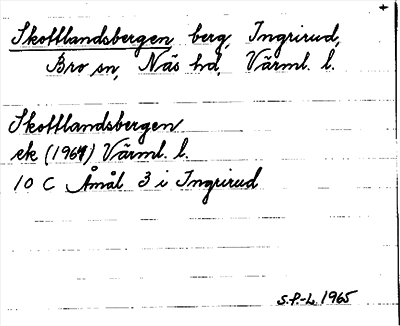 Skottlandsbergen berg, Ingrirud,
Bro sn, Näs hd, Värml. l.
Skottlandsbergen
ek (1964) Värml. l.
10 C Åmål 3 i Ingrirud
S.P.-L 1965